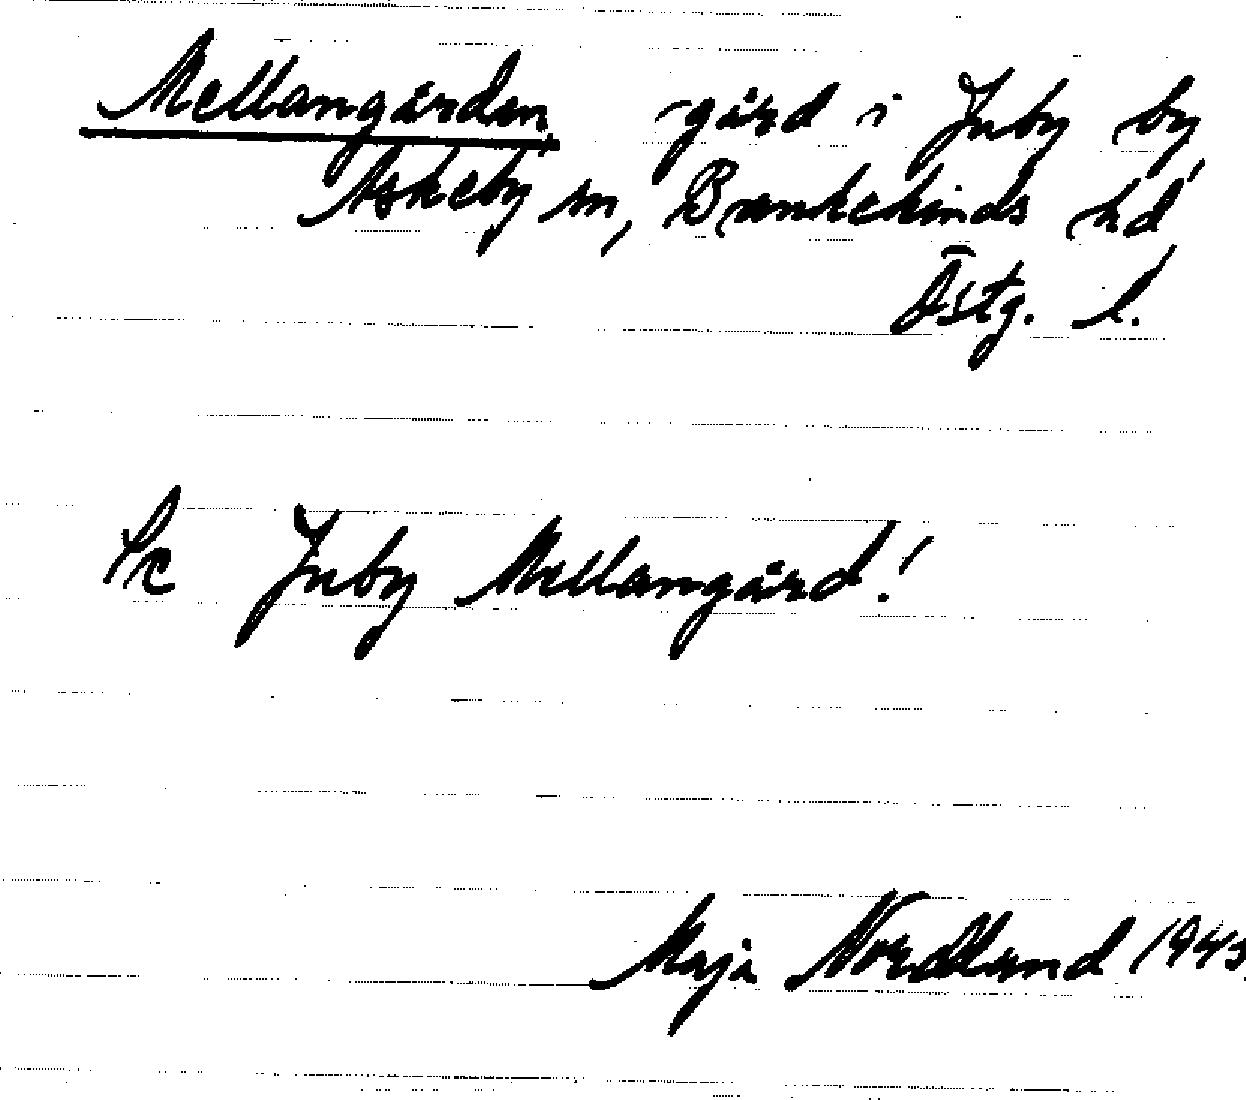 Mellangården gård i Juby by
Askeby sn, Bankekinds hd
Östg. l.
Se Juby Mellangård!
Maja Nordlund 1945